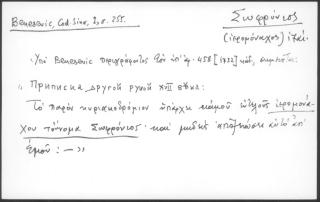 Benešević, Cod. Sina, 2, σ. 255.
Σωφρόνιος
(ἱερομόναχος)
Ὑπὸ Benešević περιγράφεται τὸν ὑπ' ἀρ. 458 [1332] κώδ. σημειοῦται:
" Приписка другой рукой XVII вѣка:
Τὸ παρὸν κυριακοδρόμιον ὑπάρχι κἀμοῦ εὐτελοῦς ἱερομονά-
χου τοὔνομα Σωφρόνιος· καὶ μηδεὶς ἀποξενώσῃ αὐτὸ ἀπ'
ἐμοῦ : — "